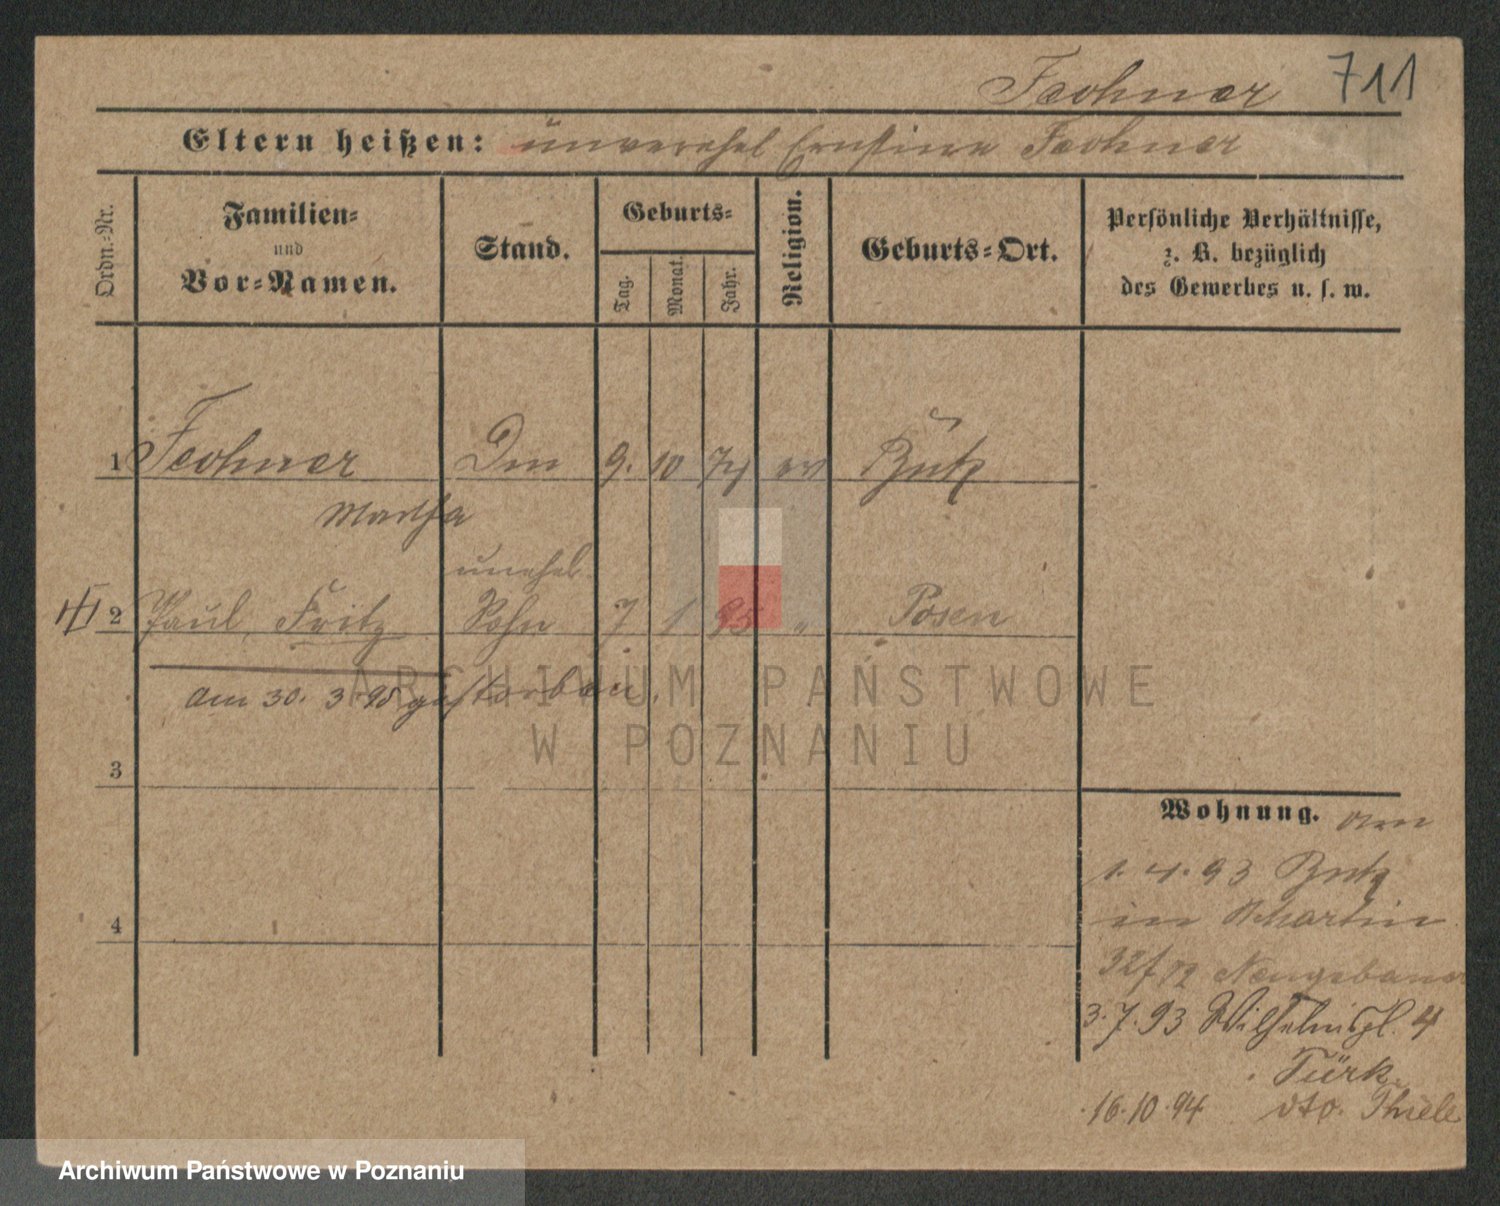 Fechner 711
Eltern heißen: unverehel Ernstine Fechner
Ordn.-Nr.
Familien-
und
Vor-Namen.
Stand.
Geburts-
Tag.
Monat.
Jahr.
Religion.
Geburts-Ort.
Persönliche Verhältnisse,
z. B. bezüglich
des Gewerbes u. s. w.
1 Fechner 9. 10 74 ev Buk
Martha
unehel
2 Paul, Fritz Sohn 7 1 95 " Posen
am 30. 3 95 gestorben.
3
4
Wohnung.
1. 4. 93 Buk
in Martin
32/ Neugebauer
3. 7. 93 Wilhelmspl. 4
Türk
16. 10. 94 dto. Thiele
ARCHIWUM PAŃSTWOWE
W POZNANIU
Archiwum Państwowe w Poznaniu